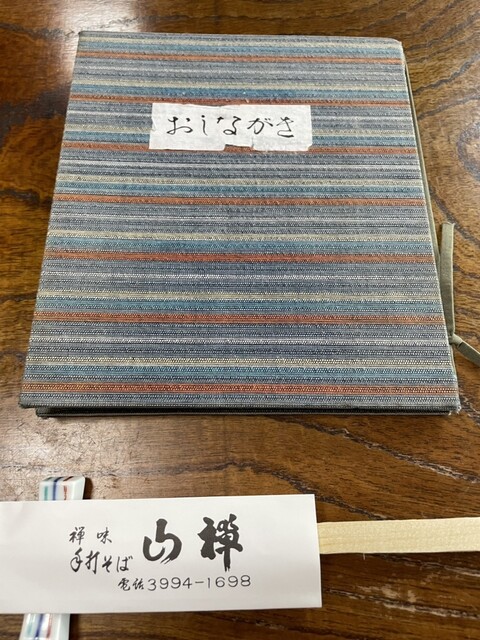 おしながき
禅味
手打そば
山禅
電話3994-1698